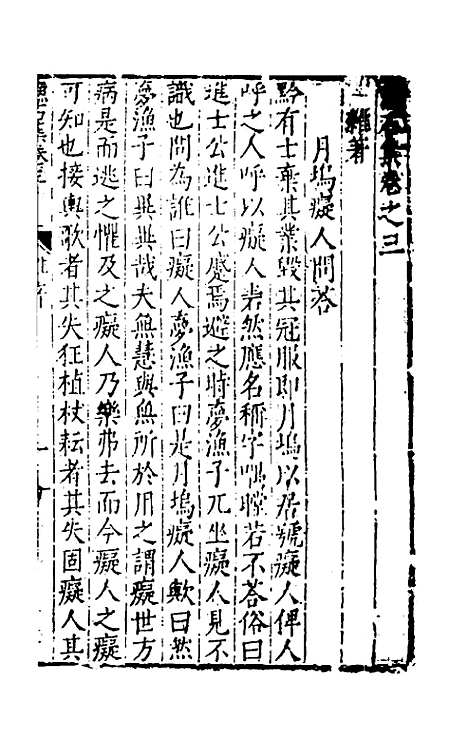 石集卷之三
雜著
月塢癡人問答
黔有士棄其業毀其冠服即月塢以居號癡人俾人
呼之人呼以癡人岩然應名稱字嘿瞠若不答俗曰
進士公進士公蹙焉避之時夢漁子兀坐癡人見不
識也問為誰曰癡人夢漁子曰是月塢癡人歟曰然
夢漁子曰異異哉夫無慧與無所於用之謂癡世方
病是而逃之惟及之癡人乃樂弗去而今癡人之癡
可知也接輿歌者其失狂植杖耘者其失固癡人其